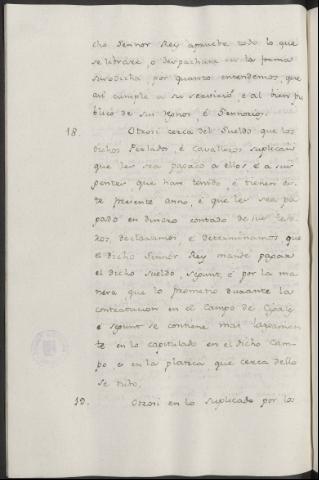 cho Sennor Rey apruebe todo lo que
se librare, o despachare en la forma
susodicha, por quanto entendemos, que
asi cumple a su servicio, é al bien pu
blico de sus Reynos, é Sennorios.
18. Otrosi cerca del Sueldo que los
dichos Perlados, é Cavalleros suplican
que les sea pagado a ellos é a sus
gentes, que han tenido, é tienen es-
te presente anno, é que les sea pa
gado en dinero contado de sus teso-
ros, declaramos é determinamos, que
el dicho Sennor Rey mande pagar
el dicho Sueldo, segunt, é por la ma
nera que lo prometio durante la
contratacion en el Campo de
é segunt se contiene mas largamen
te en lo capitulado en el dicho Cam-
po, e en la platica que cerca dello
se tuvo.
19. Otrosi en lo suplicado por los